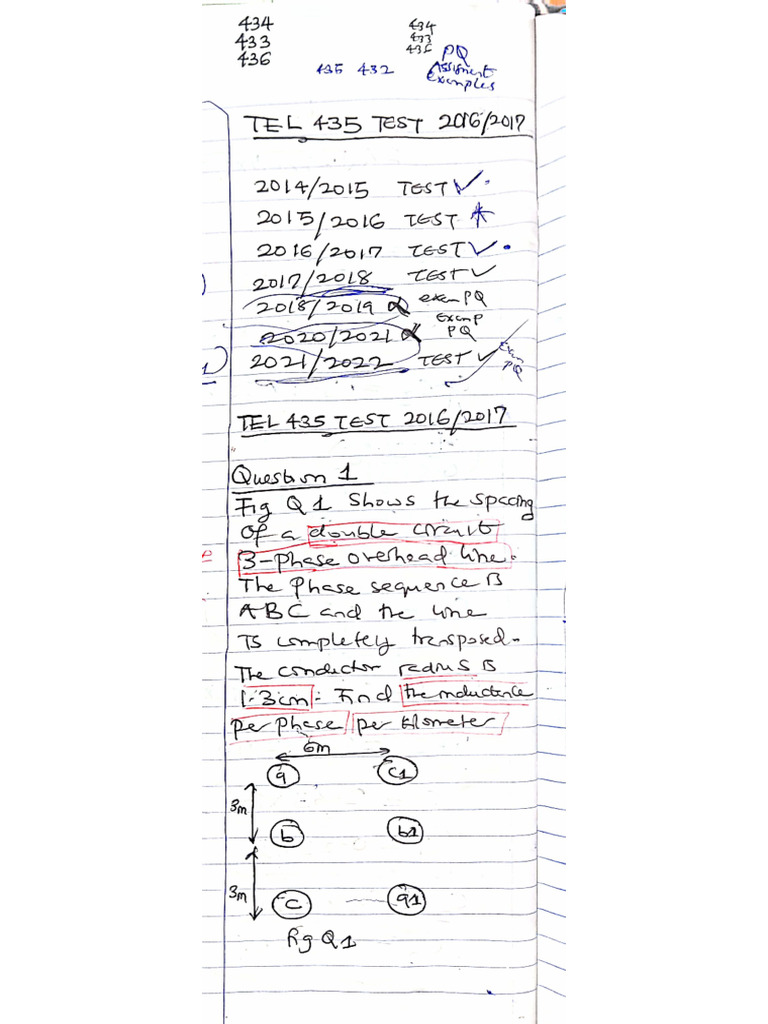 434 434
433 433
436 436 PQ
435 432 Assignment
Examples
TEL 435 TEST 2016/2017
2014/2015 TEST ✓.
2015/2016 TEST *
2016/2017 TEST ✓.
2017/2018 TEST ✓
2018/2019 exam PQ
2020/2021 PQ
2021/2022 TEST ✓ PQ
TEL 435 TEST 2016/2017
Question 1
Fig Q1 Shows the spacing
of a double circuit
3-phase overhead line.
The phase sequence is
ABC and the line
is completely transposed.
The conductor radius is
1.3cm. Find the inductance
per phase per kilometer
6m
a c1
3m
b b1
3m
c a1
fig Q1